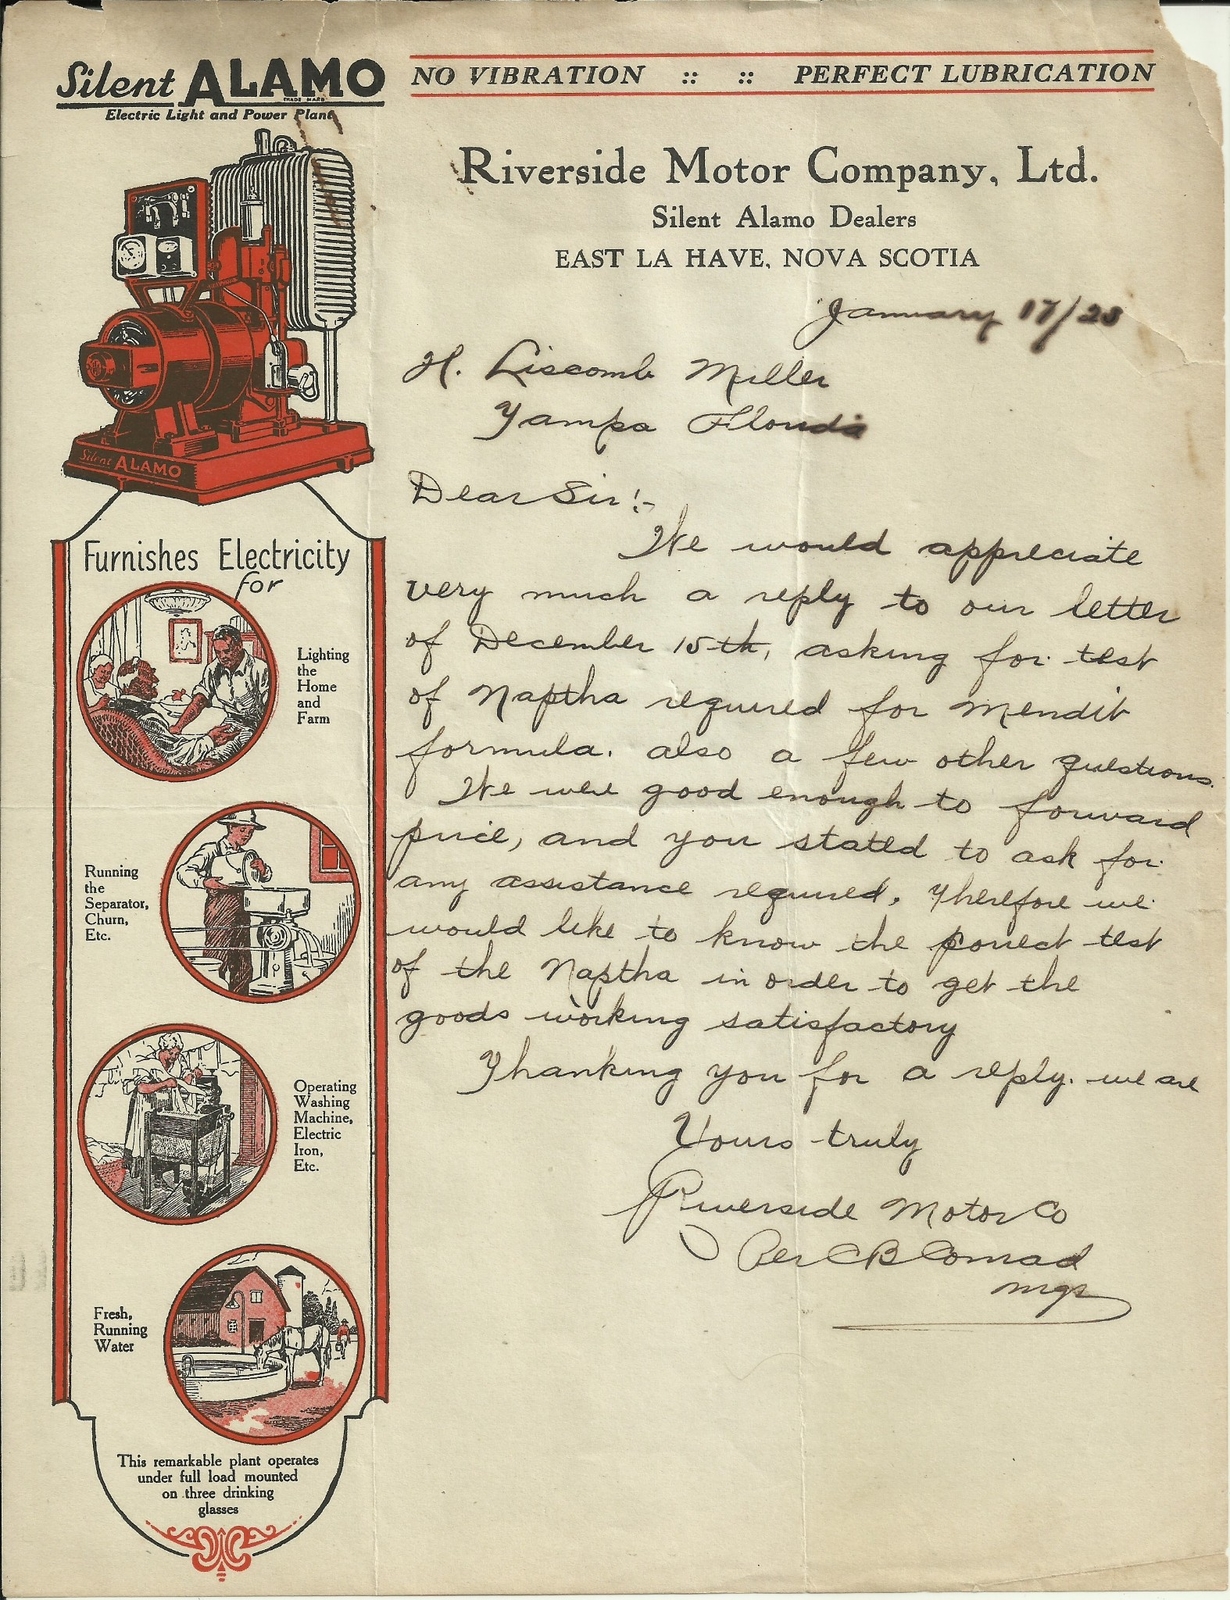 Silent ALAMO
TRADE MARK
Electric Light and Power Plant
NO VIBRATION :: :: PERFECT LUBRICATION
Riverside Motor Company, Ltd.
Silent Alamo Dealers
EAST LA HAVE, NOVA SCOTIA
Silent ALAMO
Furnishes Electricity
for
Lighting
the
Home
and
Farm
Running
the
Separator,
Churn,
Etc.
Operating
Washing
Machine,
Electric
Iron,
Etc.
Fresh,
Running
Water
This remarkable plant operates
under full load mounted
on three drinking
glasses
January 17/28
H. Liscomb Miller
Tampa Florida
Dear Sir!-
We would appreciate
very much a reply to our letter
of December 15th, asking for test
of Naptha required for Mendit
formula. also a few other questions.
We were good enough to forward
price, and you stated to ask for
any assistance required. Therefore we
would like to know the correct test
of the Naptha in order to get the
goods working satisfactory
Thanking you for a reply. we are
Yours truly
Riverside Motor Co
Per C B Conrad
Mgr